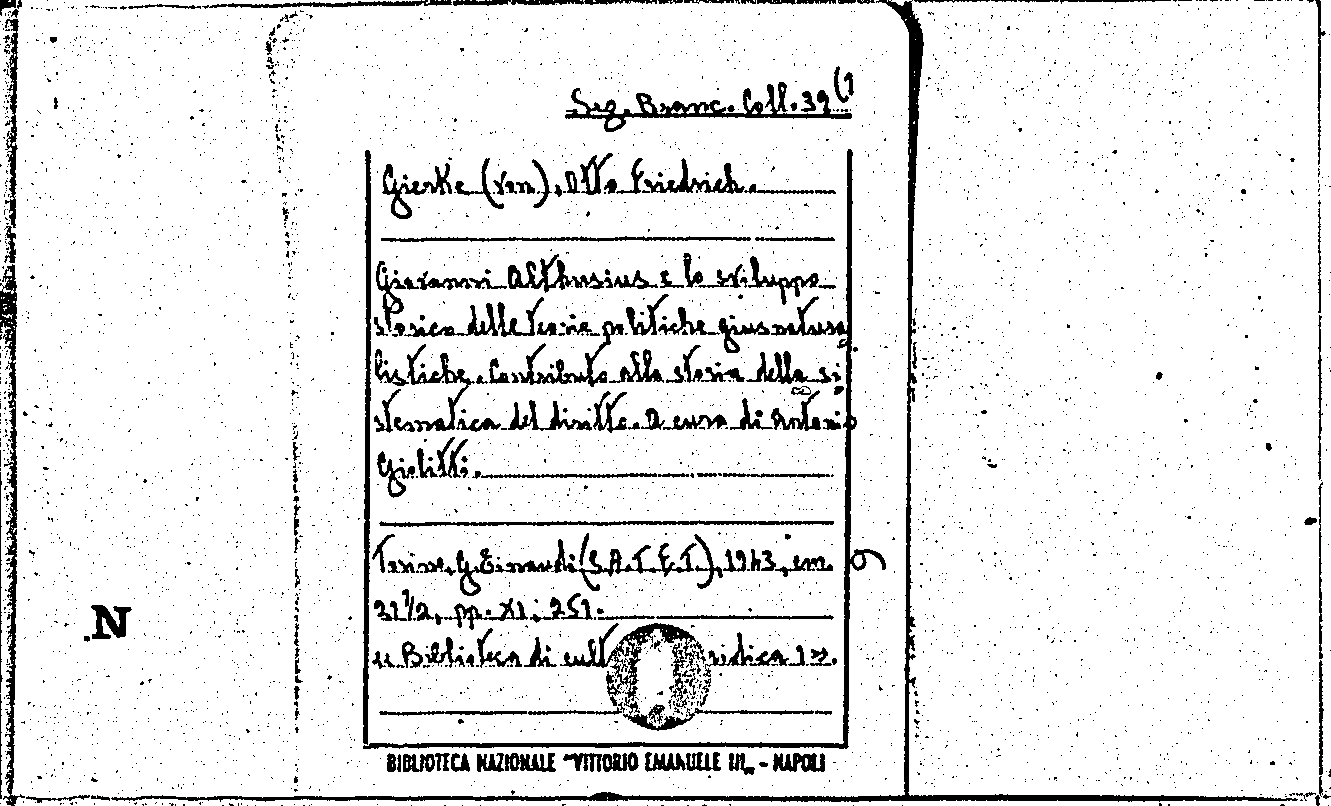 Sez. Branc. Coll. 39 (1
Gierke (von), Otto Friedrich.
Giovanni Althusius e lo sviluppo
storico delle teorie politiche giusnatura
listiche. Contributo alla storia della si
stematica del diritto. A cura di Antonio
Giolitti.
Torino, G. Einaudi (S.A.T.E.T.), 1943, cm.
21½, pp. XI, 251.
« Biblioteca di cult ridica 1».
N
BIBLIOTECA NAZIONALE "VITTORIO EMANUELE III„ - NAPOLI